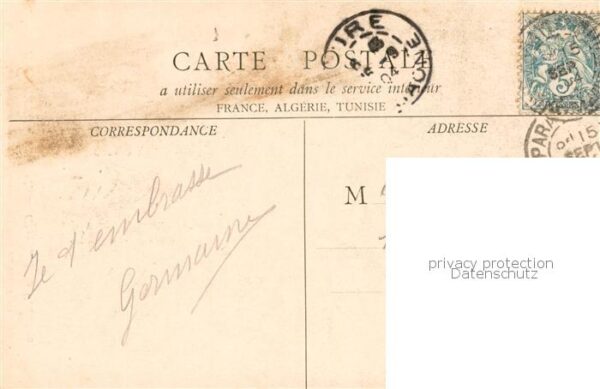 CARTE POSTALE
a utiliser seulement dans le service intérieur
FRANCE, ALGÉRIE, TUNISIE
CORRESPONDANCE
ADRESSE
M
Je t'embrasse
Germaine
privacy protection
Datenschutz
IRE
04
PARA
15
SEPT